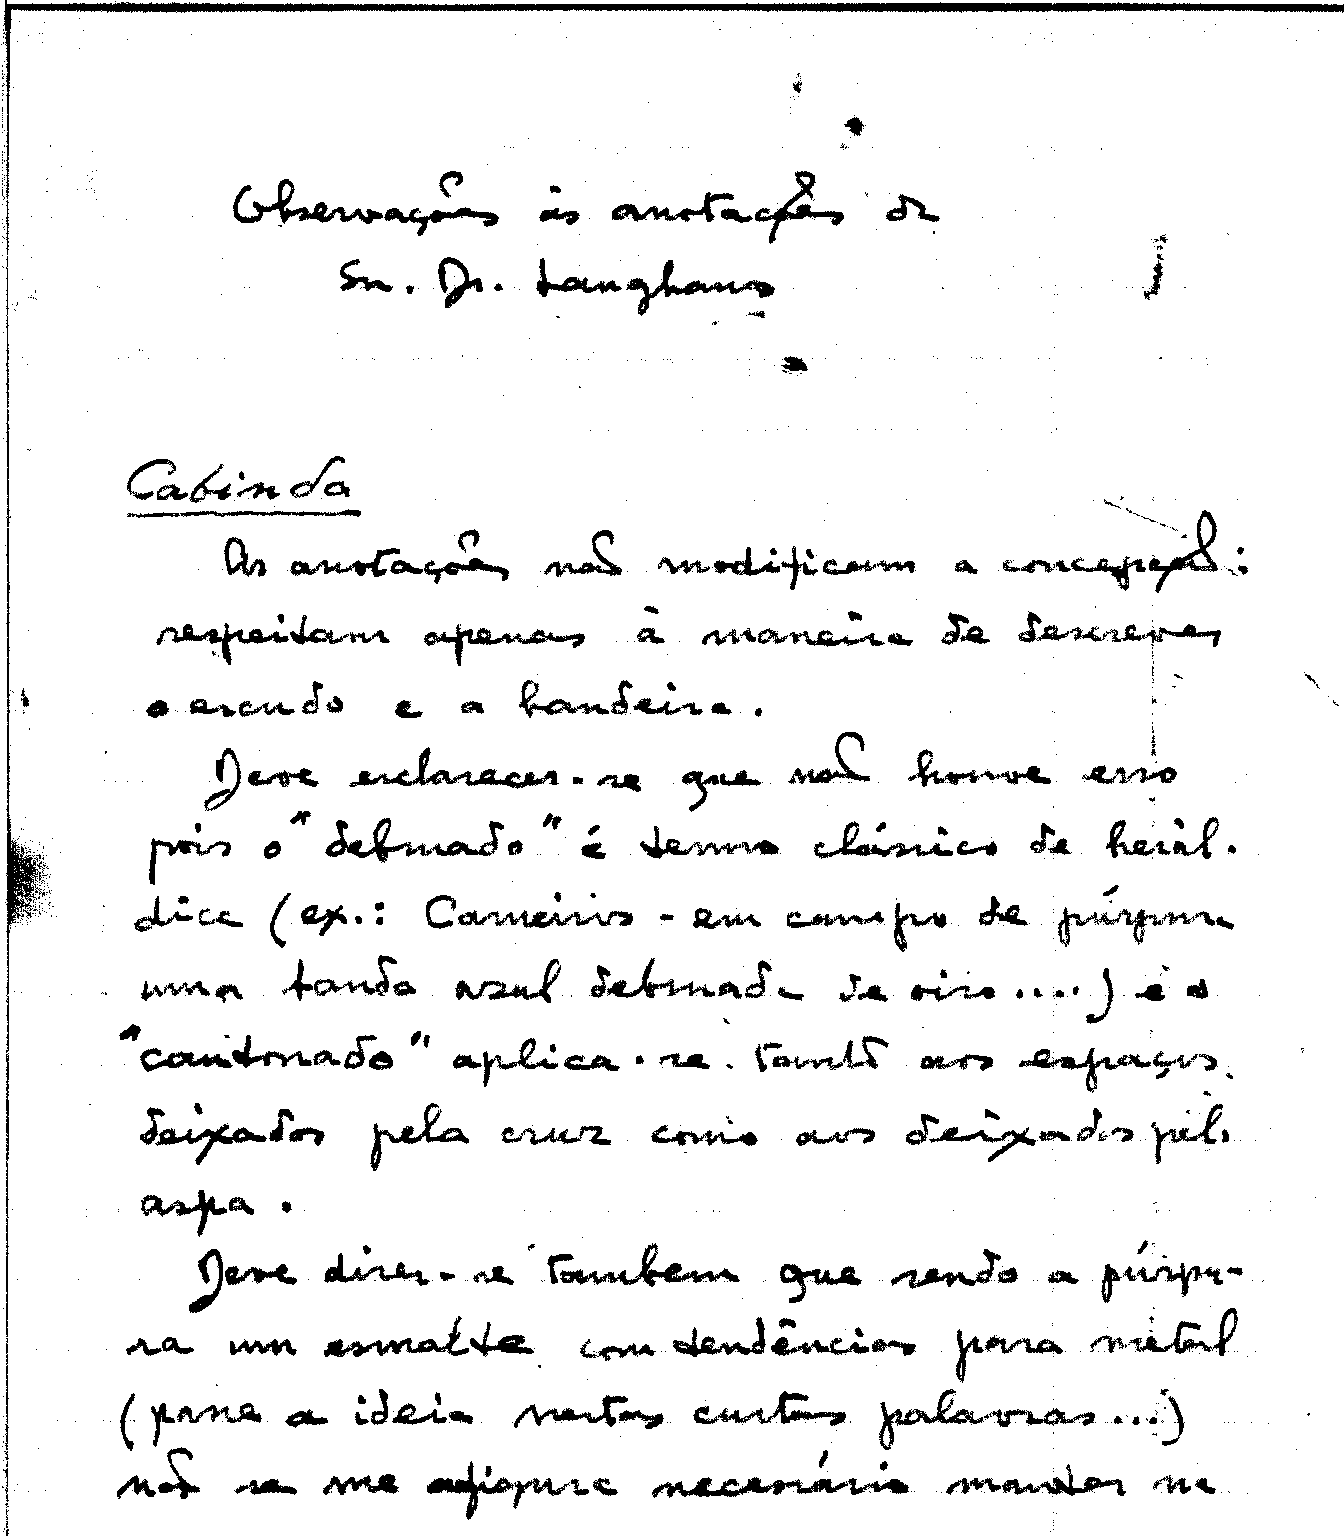 Observações às anotações do
Snr. Dr. Langhans
Cabinda
As anotações não modificam a concepção:
respeitam apenas à maneira de descrever
o escudo e a bandeira.
Deve esclarecer-se que não houve erro
pois o "debruado" é termo clássico de herál-
dica (ex.: Carneiros - em campo de púrpura
uma banda azul debruada de oiro....) e o
"cantonado" aplica-se tambº aos espaços
deixados pela cruz como aos deixados pela
aspa.
Deve dizer-se tambem que sendo a púrpu-
ra um esmalte com tendências para metal
(passe a ideia nestas curtas palavras...)
não se me afigura necessário mandar na